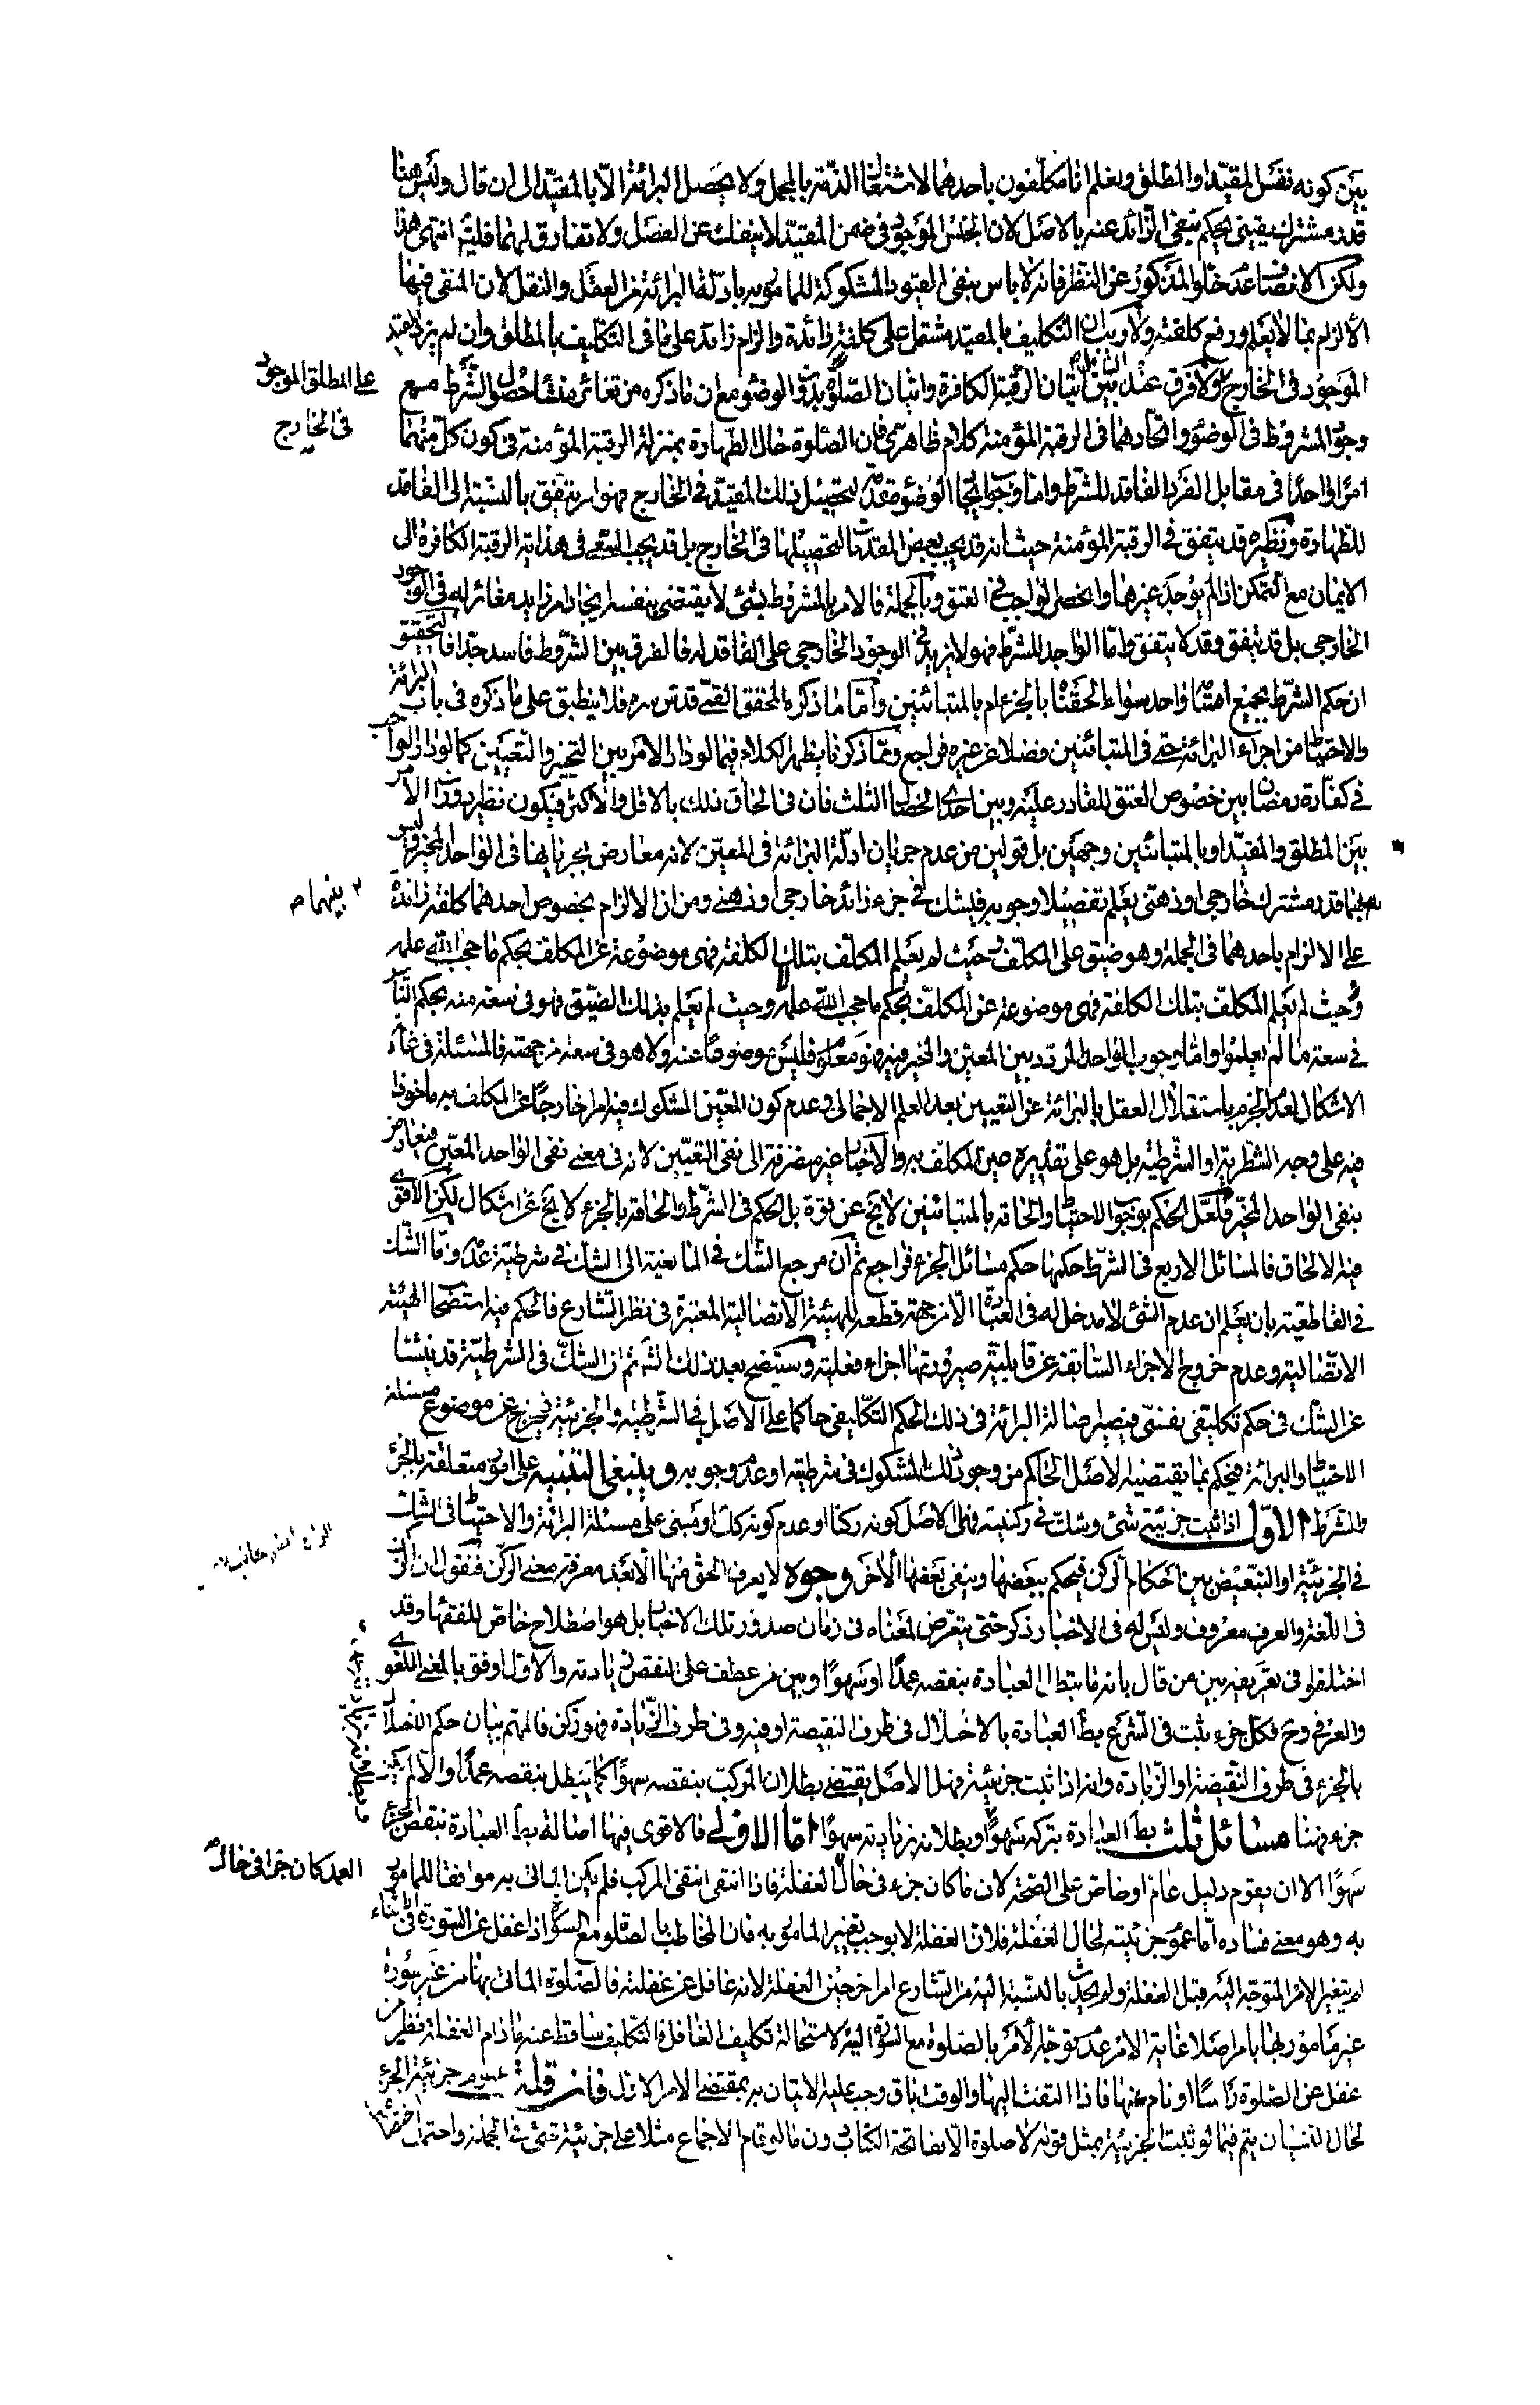 بين كونه نفس المقيد او المطلق ونعلم انا مكلفون باحدهما لاشتغال الذمة بالمجمل ولا يحصل البرائة الا بالمقيد الى ان قال وليس هنا
قدر مشترك يقينى يحكم بنفى الزائد عنه بالاصل لان الجنس الموجود فى ضمن المقيد لا ينفك عن الفصل ولا تفارق لهما فليتامل انتهى هذا
ولكن الانصاف عدم خلو المذكور عن النظر فانه لا باس بنفى القيود المشكوكة للمامور به بادلة البرائة من العقل والنقل لان المنفى فيها
الالزام بما لا يعلم ورفع كلفته ولا ريب ان التكليف بالمقيد مشتمل على كلفة زائدة والزام زائد على ما فى التكليف بالمطلق وان لم يزد المقيد
الموجود فى الخارج ولا فرق عند التامل بين اتيان الرقبة الكافرة واتيان الصلوة بدون الوضوء مع ان ما ذكره من تغائر منشا حصول الشرط مع
على المطلق الموجود
فى الخارج صح
وجود المشروط فى الوضوء واتحادهما فى الرقبة المؤمنة كلام ظاهرى فان الصلوة حال الطهارة بمنزلة الرقبة المؤمنة فى كون كل منهما
امرا واحدا فى مقابل الفرد الفاقد للشرط واما وجوب ايجاد الوضوء مقدمة لتحصيل ذلك المقيد فى الخارج فهو امر يتفق بالنسبة الى الفاقد
للطهارة ونظيره قد يتفق فى الرقبة المؤمنة حيث انه قد يجب بعض المقدمات لتحصيلها فى الخارج بل قد يجب السعى فى هداية الرقبة الكافرة الى
الايمان مع التمكن اذا لم يوجد غيرها وانحصر الواجب فى العتق وبالجملة فالامر بالمشروط بشئ لا يقتضى بنفسه ايجاد امر زايد مغائر له فى الوجود
الخارجى بل قد يتفق وقد لا يتفق واما الواجد للشرط فهو لا يزيد فى الوجود الخارجى على الفاقد له فالفرق بين الشروط فاسد جدا فالتحقيق
ان حكم الشرط بجميع اقسامه واحد سواء الحقناه بالجزء ام بالمتبائنين واما ما ذكره المحقق القمى قدس سره فلا ينطبق على ما ذكره فى باب البرائة
والاحتياط من اجراء البرائة حتى فى المتبائنين فضلا عن غيره فراجع ومما ذكرنا يظهر الكلام فيما لو دار الامر بين التخيير والتعيين كما لو دار الواجب
فى كفارة رمضان بين خصوص العتق للقادر عليه وبين احدى الخصال الثلث فان فى الحاق ذلك بالاقل والاكثر فيكون نظير دوران الامر
بين المطلق والمقيد او بالمتبائنين وجهين بل قولين من عدم جريان ادلة البرائة فى المعين لانه معارض بجريانها فى الواحد المخير وليس
بينهما قدر مشترك خارجى او ذهنى يعلم تفصيلا وجوبه فيشك فى جزء زائد خارجى او ذهنى ومن ان الالزام بخصوص احدهما كلفة زائدة
بينهما ص
على الالزام باحدهما فى الجملة وهو ضيق على المكلف وحيث لم يعلم المكلف بتلك الكلفة فهى موضوعة عن المكلف بحكم ما حجب الله علمه
وحيث لم يعلم المكلف بتلك الكلفة فهى موضوعة عن المكلف بحكم ما حجب الله علمه وحيث لم يعلم بذلك الضيق فهو فى سعة منه بحكم الناس
فى سعة ما لم يعلموا واما وجوب الواحد المردد بين المعين والمخير فيه فهو معلوم فليس موضوعا عنه ولا هو فى سعة من جهته فالمسئلة فى غاية
الاشكال لعدم الجزم باستقلال العقل بالبرائة عن التعيين بعد العلم الاجمالى وعدم كون المعين المشكوك فيه امرا خارجا عن المكلف به ماخوذا
فيه على وجه الشطرية او الشرطية بل هو على تقديره عين المكلف به والاخبار غير منصرفة الى نفى التعيين لانه فى معنى نفى الواحد المعين فيعارض
بنفى الواحد المخير فلعل الحكم بوجوب الاحتياط والحاقه بالمتبائنين لا يخ عن قوة بل الحكم فى الشرط والحاقه بالجزء لا يخ عن اشكال لكن الاقوى
فيه الالحاق فالمسائل الاربع فى الشرط حكمها حكم مسائل الجزء فراجع ثم ان مرجع الشك فى المانعية الى الشك فى شرطية عدمه واما الشك
فى القاطعية بان يعلم ان عدم الشئ لا مدخل له فى العبادة الا من جهة قطعه للهيئة الاتصالية المعتبرة فى نظر الشارع فالحكم فيه استصحاب الهيئة
الاتصالية وعدم خروج الاجزاء السابقة عن قابلية صيرورتها اجزاء فعلية وسيتضح بعد ذلك انشه ثم ان الشك فى الشرطية قد ينشا
عن الشك فى حكم تكليفى نفسى فيصير اصالة البرائة فى ذلك الحكم التكليفى حاكما على الاصل فى الشرطية والجزئية فيخرج عن موضوع مسئلة
الاحتياط والبرائة فيحكم بما يقتضيه الاصل الحاكم من وجوب ذلك المشكوك فى شرطيته او عدم وجوبه وينبغى التنبيه على امور متعلقة بالجزء
والشرط الاول اذا ثبت جزئية شئ وشك فى ركنيته فهل الاصل كونه ركنا او عدم كونه كك او مبنى على مسئلة البرائة والاحتياط فى الشك
فى الجزئية او التبعيض بين احكام الركن فيحكم ببعضها وينفى بعضها الاخر وجوه لا يعرف الحق منها الا بعد معرفة معنى الركن فنقول ان الركن
فى اللغة والعرف معروف وليس له فى الاخبار ذكر حتى يتعرض لمعناه فى زمان صدور تلك الاخبار بل هو اصطلاح خاص للفقهاء وقد
اختلفوا فى تعريفه بين من قال بانه ما تبطل العبادة بنقصه عمدا او سهوا وبين من عطف على النقص زيادته والاول اوفق بالمعنى اللغوى
والعرفى وح فكل جزء ثبت فى الشرع بطلان العبادة بالاخلال فى طرف النقيصة او فيه وفى طرف الزيادة فهو ركن فالمهم بيان حكم الاخلال
بالجزء فى طرف النقيصة او الزيادة وانه اذا ثبت جزئيته فهل الاصل يقتضى بطلان المركب بنقصه سهوا كما يبطل بنقصه عمدا والا لم يكن
جزء فهنا مسائل ثلث بطلان العبادة بتركه سهوا وبطلانه بزيادته سهوا اما الاولى فالاقوى فيها اصالة بطلان العبادة بنقص الجزء
سهوا الا ان يقوم دليل عام او خاص على الصحة لان ما كان جزء فى حال الغفلة فاذا انتفى انتفى المركب فلم يكن الماتى به موافقا للمامور
العمد كان جزا فى حال ص
به وهو معنى فساده اما عموم جزئيته لحال الغفلة فلان الغفلة لا يوجب تغيير المامور به فان المخاطب بالصلوة مع السورة اذا غفل عن السورة فى الاثناء
لم يتغير الامر المتوجه اليه قبل الغفلة ولم يحدث بالنسبة اليه من الشارع امر اخر حين الغفلة لانه غافل عن غفلته فالصلوة الماتى بها من غير سورة
غير مامور بها بامر اصلا غاية الامر عدم توجه الامر بالصلوة مع السورة اليه لاستحالة تكليف الغافل فالتكليف ساقط عنه ما دام الغفلة نظير من
غفل عن الصلوة راسا او نام عنها فاذا التفت اليها والوقت باق وجب عليه الاتيان به بمقتضى الامر الاول فان قلت عموم جزئية الجزء
لحال النسيان يتم فيما لو ثبت الجزئية بمثل قوله لا صلوة الا بفاتحة الكتاب دون ما لو قام الاجماع مثلا على جزئية شئ فى الجملة واحتمل اختصاصها